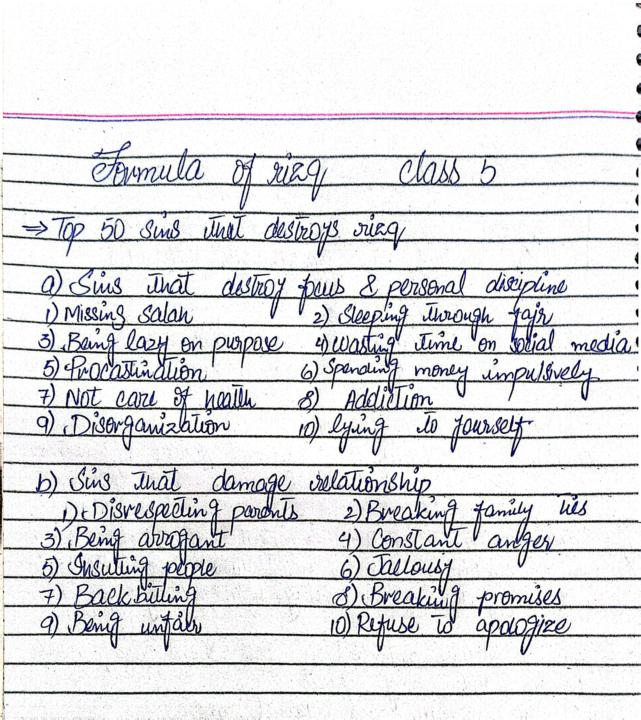 Formula of rizq class 5
⇒ Top 50 sins that destroys rizq
a) Sins that destroy focus & personal discipline
1) Missing Salah 2) Sleeping through fajr
3) Being lazy on purpose 4) Wasting time on social media
5) Procastination 6) Spending money impulsively
7) Not care of health 8) Addiction
9) Disorganization 10) lying to yourself
b) Sins that damage relationship
1) Disrespecting parents 2) Breaking family ties
3) Being arrogant 4) Constant anger
5) Insulting people 6) Jaelousy
7) Backbiting 8) Breaking promises
9) Being unfair 10) Refuse to apologize